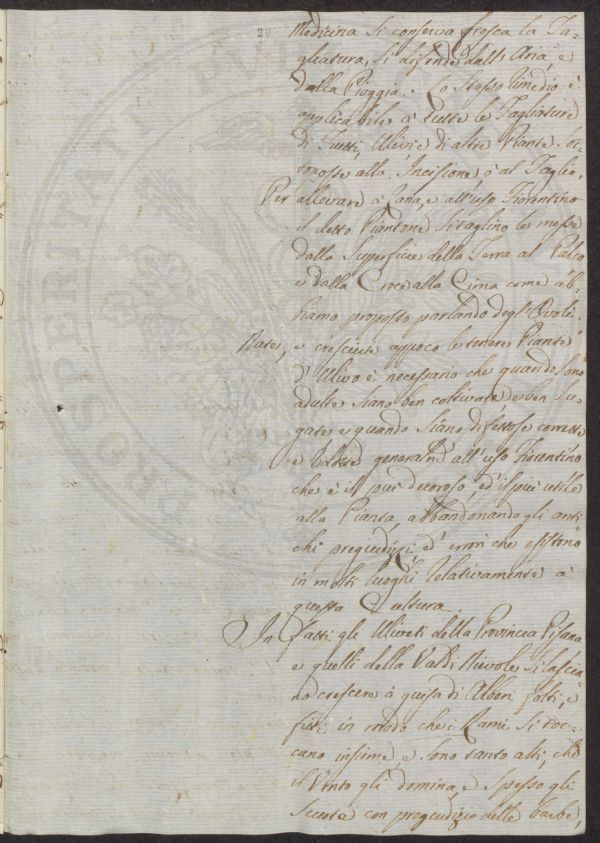 20
Medicina si conserva fresca la Ta-
gliatura, si difende dall'Aria, e
dalla Pioggia. Lo Stesso rimedio è
applicabile à tutte le Tagliature
di Frutti, Ulivi e di altre Piante Sot-
toposte alla Incisione ò al Taglio.
Per allevare à Cana, e all'uso Fiorentino
il detto Piantone si taglino le messe
dalla Superficie della Terra al Palco
e dalla Croce alla Cima come ab-
biamo proposto parlando degl'Ovoli.
Nate, e cresciute appoco le tenere Piante
d'Ulivo è necessario che quando sono
adulte siano ben coltivate e ben Su-
gate e quando siano difettose corrette
e all'uso Fiorentino
che è il più decoroso, ed il più utile
alla Pianta, abbandonando gli anti
chi pregiudizi, ed errori che esistono
in molti luoghi relativamente à
questa Cultura.
In fatti gli Uliveti della Provincia Pisana
e quelli della Val di Nievole si lascia
no crescere à guisa di Alberi folti, e
fitti in modo che i Rami si toc-
cano insieme, e sono tanto alti, che
il Vento gli domina, e spesso gli
Scuote con pregiudizio delle barbe,
PROSPERITATI